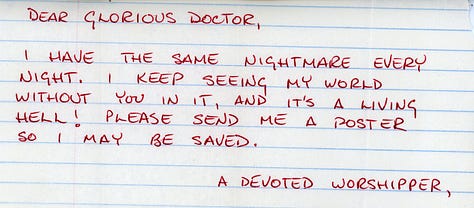 DEAR GLORIOUS DOCTOR,
I HAVE THE SAME NIGHTMARE EVERY
NIGHT. I KEEP SEEING MY WORLD
WITHOUT YOU IN IT, AND IT'S A LIVING
HELL! PLEASE SEND ME A POSTER
SO I MAY BE SAVED.
A DEVOTED WORSHIPPER,